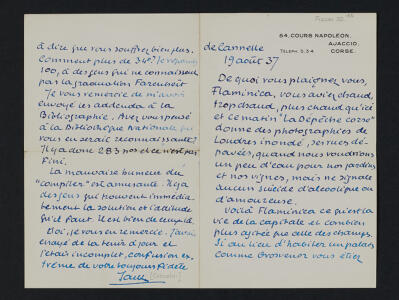 64, COURS NAPOLÉON.
AJACCIO.
TELEPH. 5.34 CORSE.
de Cannelle
19 août 37
De quoi vous plaignez vous,
Flaminica, vous aviez chaud,
trop chaud, plus chaud qu'ici
et ce matin "La Dépêche corse"
donne des photographies de
Londres inondé, ses rues dé-
pavées, quand nous voudrions
un peu d'eau pour nos jardins
et nos vignes, mais ne signale
aucun suicide d'alcoolique ou
d'amoureuse.
Voilà Flaminica ce qu'est la
vie de la capitale et combien
plus agitée que celle des champs.
Si au lieu d'habiter un palais
comme Grosvenor vous étiez
à dire que vous souffrez bien plus.
Comment plus de 34°? Je réponds
100, à des gens qui ne connaissent
pas la graduation Farenheit
Je vous remercie de m'avoir
envoyé les addenda à la
Bibliographie. Avez vous pensé
à la Bibliothèque Nationale qui
vous en serait reconnaissante?
Il y a donc 283 nos et ce n'est pas
fini.
La mauvaise humeur du
"compiler" est amusante. Il y a
des gens qui trouvent immédia-
tement la solution et l'attitude
qu'il faut. Il est bien de ceux là.
Moi, je vous en remercie. J'avais
essayé de la tenir à jour et
j'étais incomplet, confusion ex-
trême de votre toujours fidèle